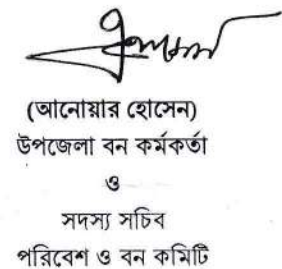 (আনোয়ার হোসেন)
উপজেলা বন কর্মকর্তা
ও
সদস্য সচিব
পরিবেশ ও বন কমিটি